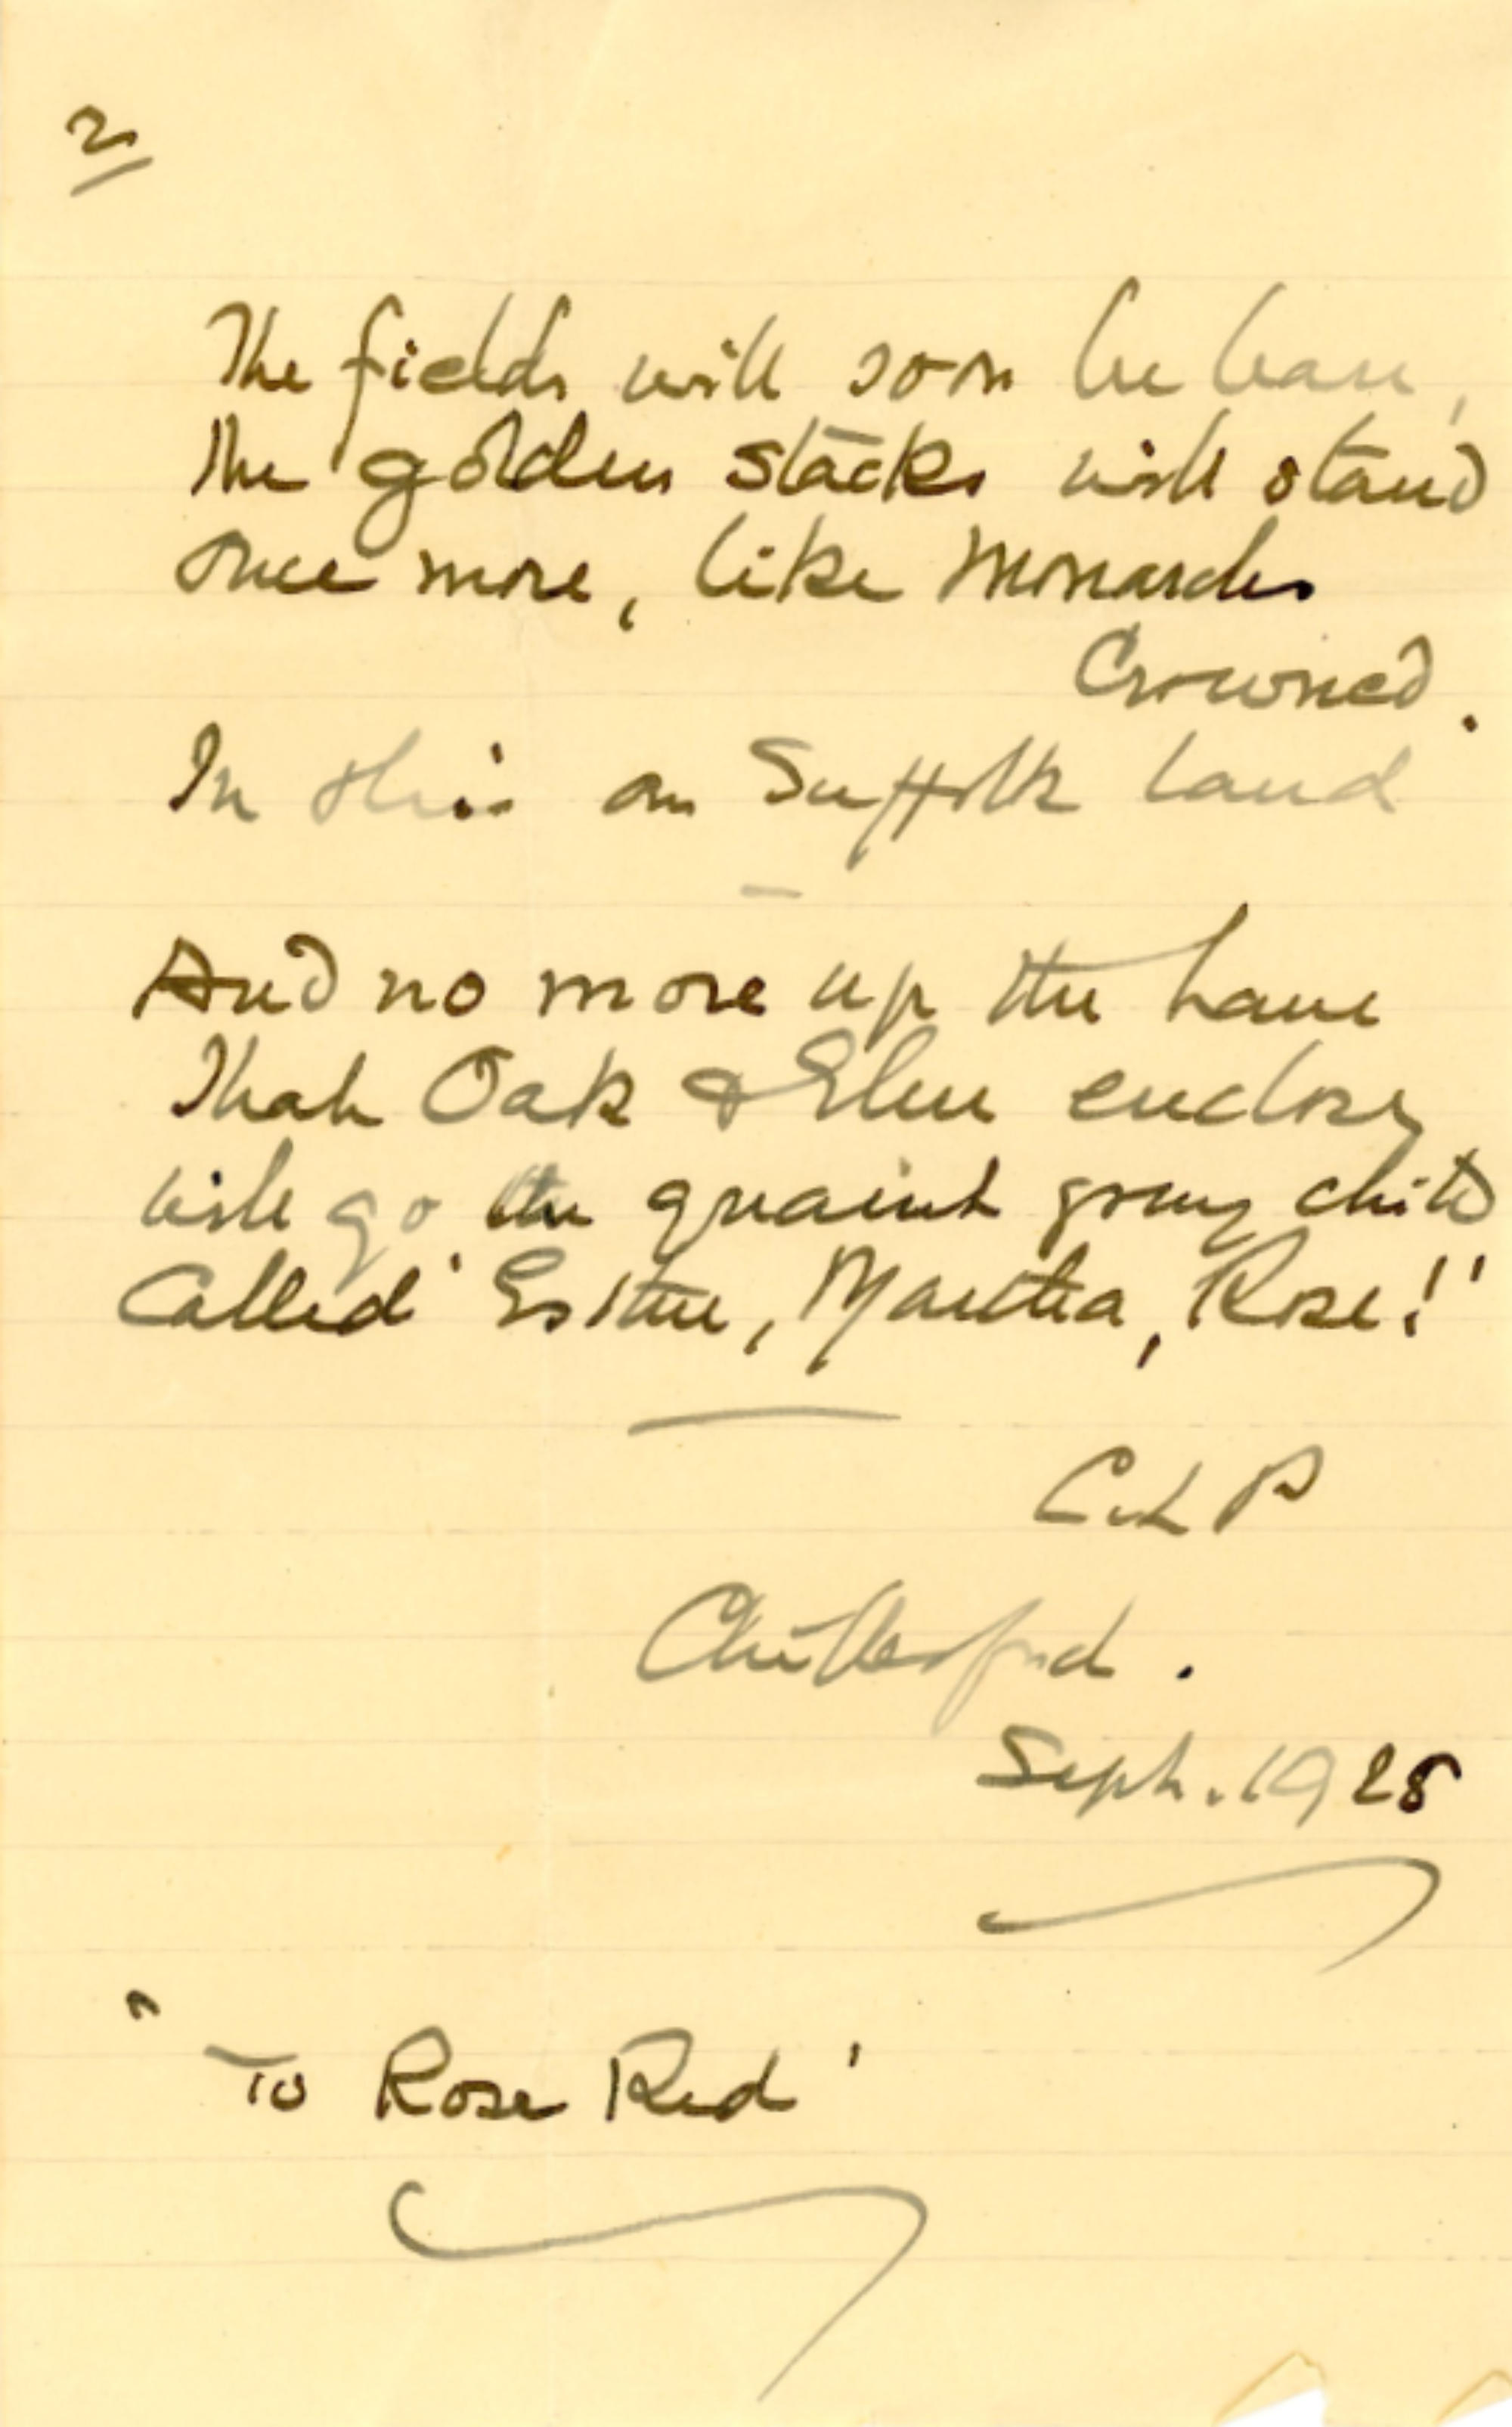 2
The fields will soon be bare,
The golden stacks will stand
Once more, like Monarchs
Crowned.
In this our Suffolk Land
And no more up the Lane
That Oak & Elm enclose
will go the quaint young child
Called 'Esther, Martha, Rose!'
C.L.P
Chillesford.
Sept. 1928
"To Rose Red'